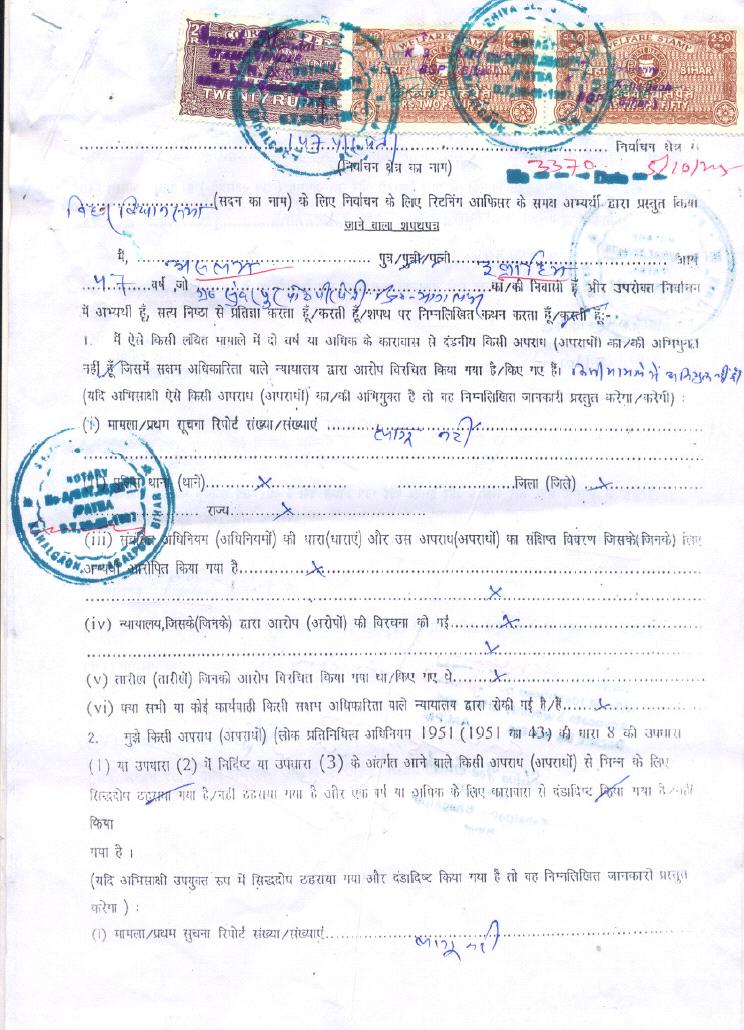 COURT FEE WELFARE STAMP WELFARE STAMP
TWENTY RU RS. TWO P BIHAR FIFTY
NOTARY
PATNA
157 पीरपैंती निर्वाचन क्षेत्र से
(निर्वाचन क्षेत्र का नाम) No 3370 Date 5/10/
बिहार विधान सभा (सदन का नाम) के लिए निर्वाचन के लिए रिटर्निंग आफिसर के समक्ष अभ्यर्थी द्वारा प्रस्तुत किया
जाने वाला शपथपत्र
मैं, असलम पुत्र/पुत्री/पत्नी इब्राहिम आयु
47 वर्ष, जो का/की निवासी हूँ और उपरोक्त निर्वाचन
में अभ्यर्थी हूँ, सत्य निष्ठा से प्रतिज्ञा करता हूँ/करती हूँ/शपथ पर निम्नलिखित कथन करता हूँ/करती हूँ:-
1. मैं ऐसे किसी लंबित मामाले में दो वर्ष या अधिक के कारावास से दंडनीय किसी अपराध (अपराधों) का/की अभियुक्त
नहीं हूँ जिसमें सक्षम अधिकारिता वाले न्यायालय द्वारा आरोप विरचित किया गया है/किए गए हैं। किसी मामले में अभियुक्त नहीं हूँ
(यदि अभिसाक्षी ऐसे किसी अपराध (अपराधों) का/की अभियुक्त है तो वह निम्नलिखित जानकारी प्रस्तुत करेगा/करेगी) :
(i) मामला/प्रथम सूचना रिपोर्ट संख्या/संख्याएं लागू नहीं
NOTARY
PATNA
KAHALGAON, BHAGALPUR BIHAR
(ii) पुलिस थाना (थाने) x जिला (जिले) x
राज्य x
(iii) संबंधित अधिनियम (अधिनियमों) की धारा(धाराएं) और उस अपराध(अपराधों) का संक्षिप्त विवरण जिसके(जिनके) लिए
अभ्यर्थी आरोपित किया गया है x
x
(iv) न्यायालय,जिसके(जिनके) द्वारा आरोप (आरोपों) की विरचना की गई x
x
(v) तारीख (तारीखें) जिनको आरोप विरचित किया गया था/किए गए थे x
(vi) क्या सभी या कोई कार्यवाही किसी सक्षम अधिकारिता वाले न्यायालय द्वारा रोकी गई है/हैं x
2. मुझे किसी अपराध (अपराधों) (लोक प्रतिनिधित्व अधिनियम 1951 (1951 का 43) की धारा 8 की उपधारा
(1) या उपधारा (2) में निर्दिष्ट या उपधारा (3) के अंतर्गत आने वाले किसी अपराध (अपराधों) से भिन्न के लिए
सिद्धदोष ठहराया गया है/नहीं ठहराया गया है और एक वर्ष या अधिक के लिए कारावास से दंडादिष्ट किया गया है/नहीं
किया
गया है ।
(यदि अभिसाक्षी उपयुक्त रूप में सिद्धदोष ठहराया गया और दंडादिष्ट किया गया है तो वह निम्नलिखित जानकारी प्रस्तुत
करेगा ) :
(i) मामला/प्रथम सुचना रिपोर्ट संख्या/संख्याएं लागू नहीं